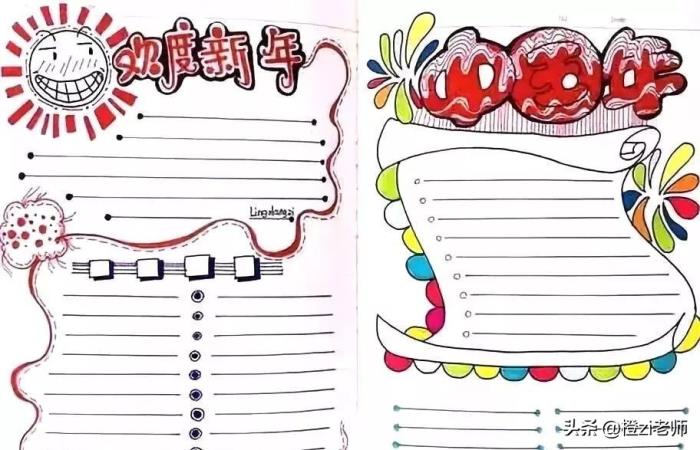 欢度新年
中国年
头条 @橙zi老师